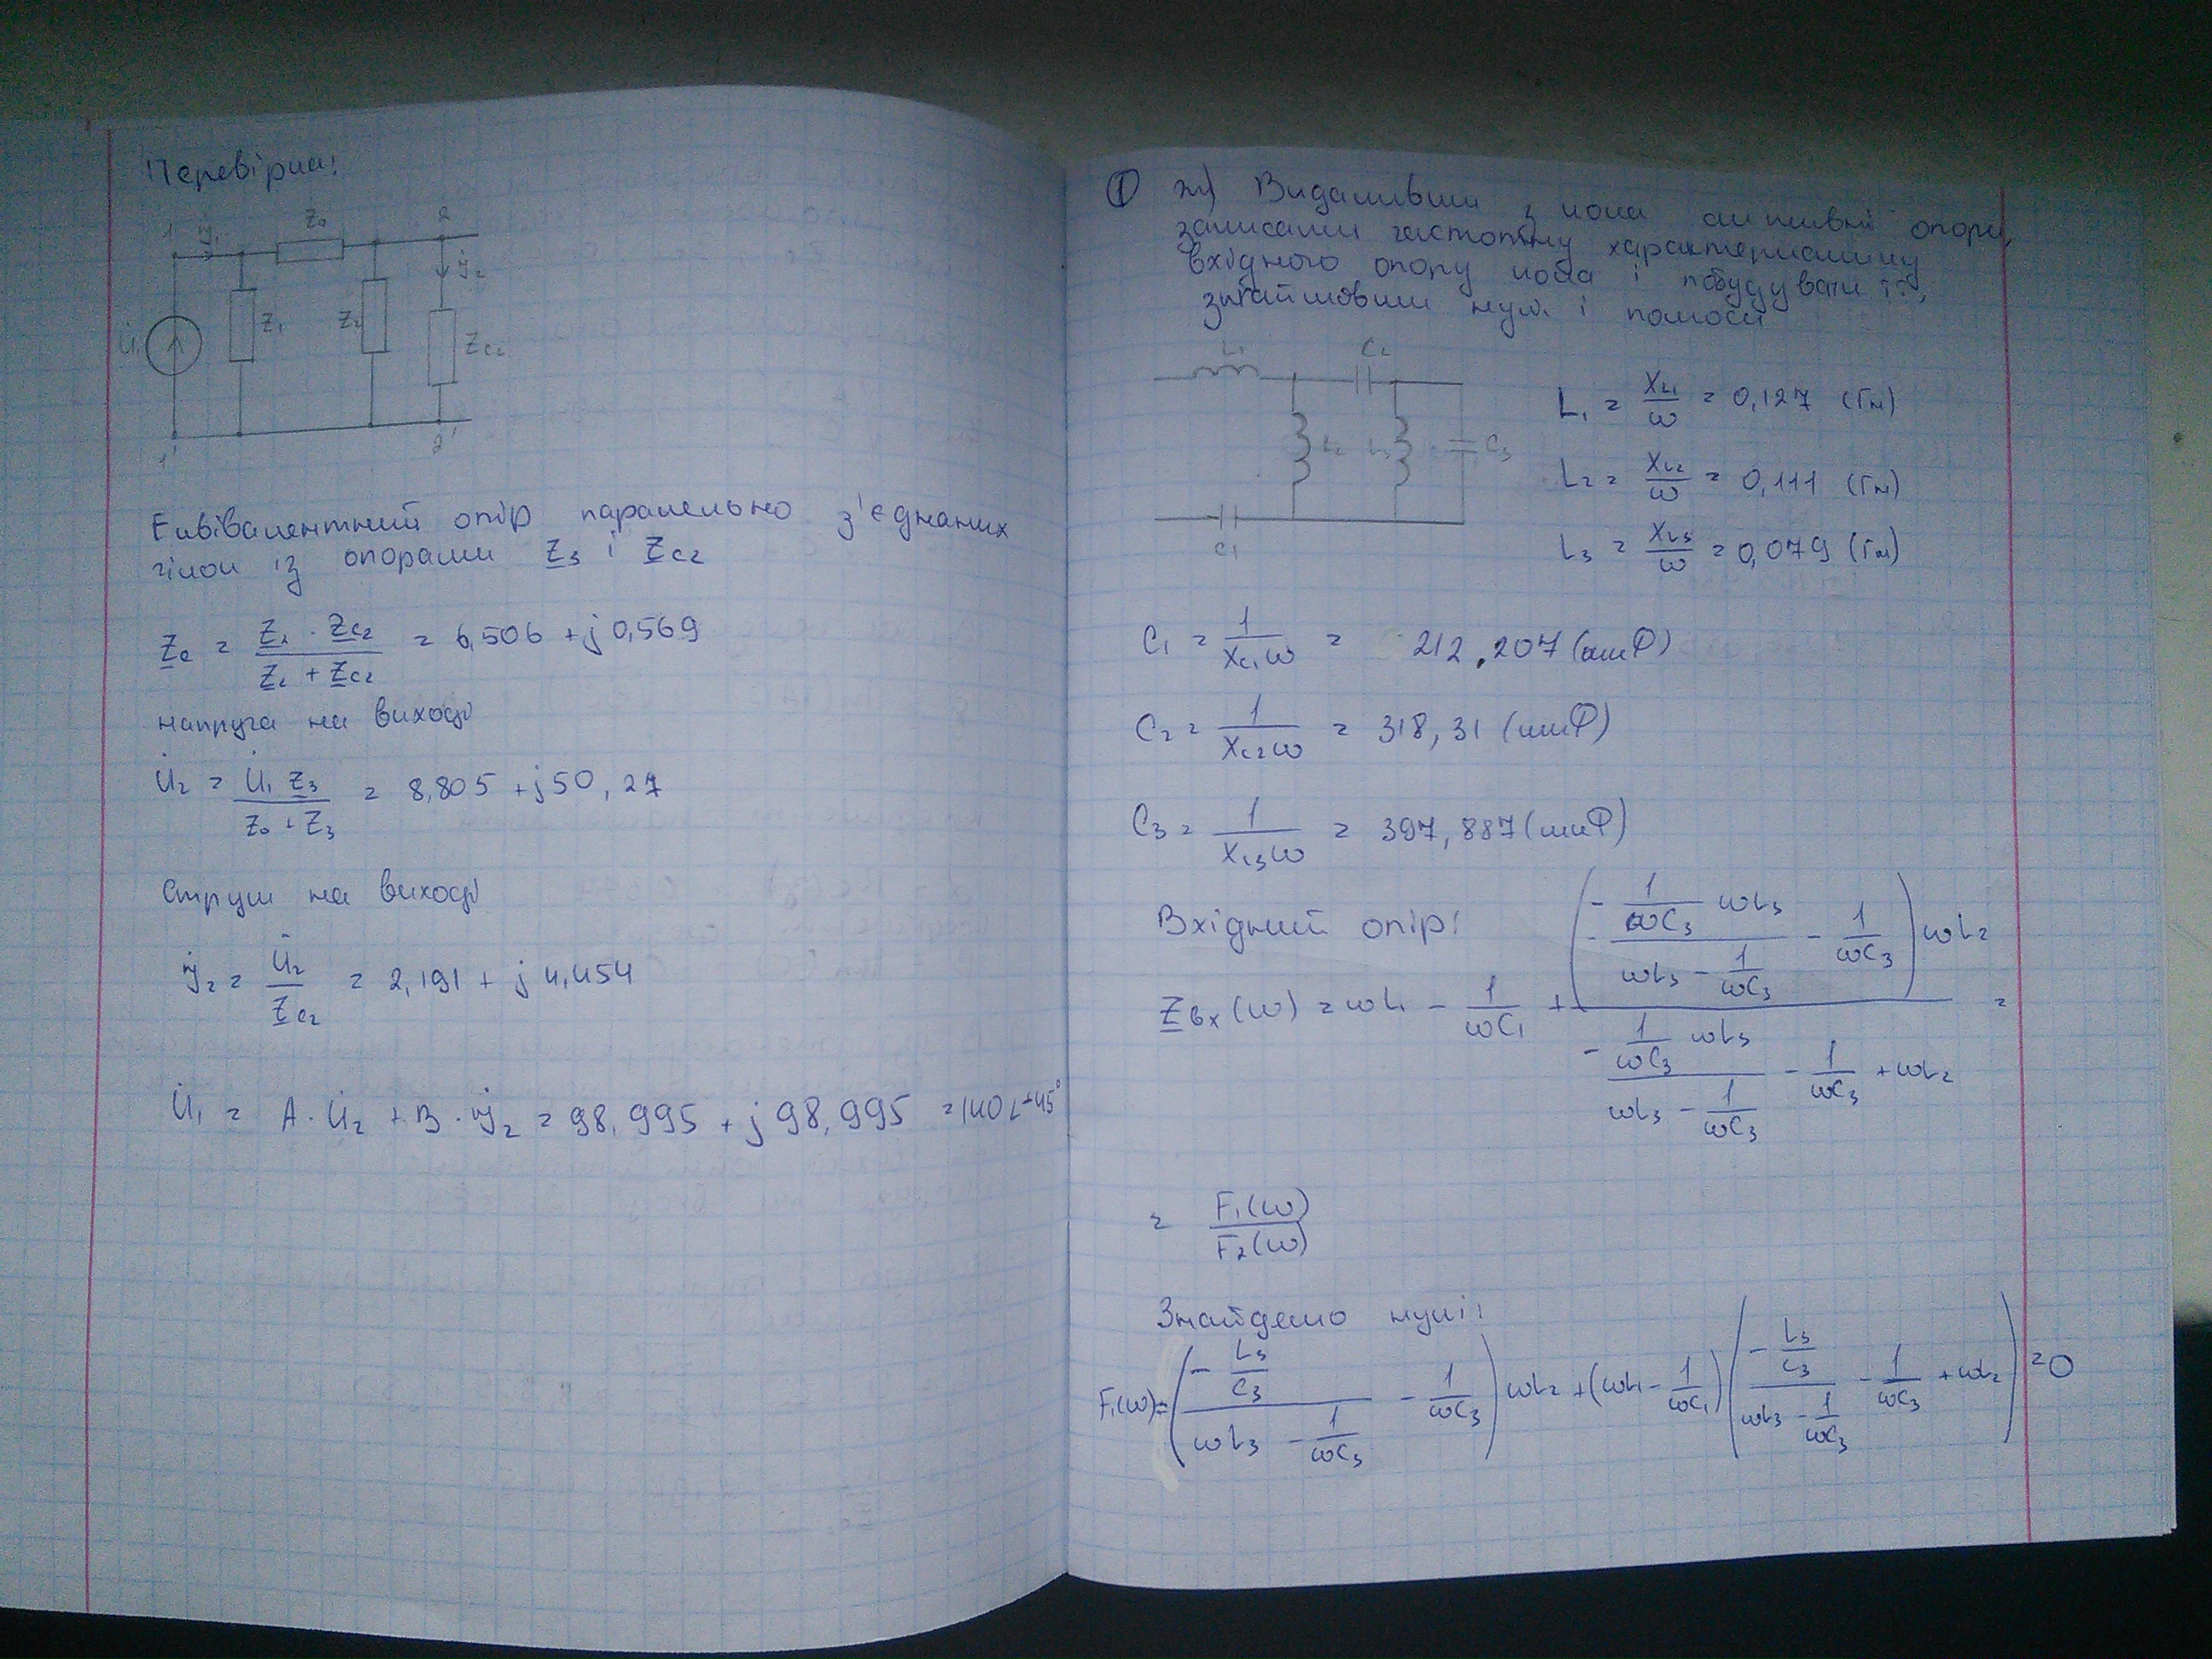 Перевірка:
1 İ₁ Z₀ 2
İ₂
U̇₁ Z₁ Z₂ Zc₂
1' 2'
Еквівалентний опір паралельно з'єднаних
гілок із опорами Z₃ і Zc₂
Zₑ = Z₂ · Zc₂ / Z₂ + Zc₂ = 6,506 + j0,569
напруга на виході
U̇₂ = U̇₁ Z₃ / Z₀ + Z₃ = 8,805 + j50,27
Струм на виході
İ₂ = U̇₂ / Zc₂ = 2,191 + j4,454
U̇₁ = A · U̇₂ + B · İ₂ = 98,995 + j98,995 = 140∠+45°
① ж) Видаливши з кола активні опори,
записати частотну характеристику
вхідного опору кола і побудувати її,
знайшовши нулі і полюси
L₁ C₂
L₂ L₃ C₃
C₁
L₁ = X_L₁ / ω = 0,127 (Гн)
L₂ = X_L₂ / ω = 0,111 (Гн)
L₃ = X_L₃ / ω = 0,079 (Гн)
C₁ = 1 / X_C₁ω = 212,207 (мкФ)
C₂ = 1 / X_C₂ω = 318,31 (мкФ)
C₃ = 1 / X_C₃ω = 397,887 (мкФ)
Вхідний опір:
Zвх(ω) = ωL₁ - 1/ωC₁ + ((- 1/ωC₃ ωL₃) / (ωL₃ - 1/ωC₃) - 1/ωC₃) ωL₂ / ((- 1/ωC₃ ωL₃) / (ωL₃ - 1/ωC₃) - 1/ωC₃ + ωL₂) =
= F₁(ω) / F₂(ω)
Знайдемо нулі:
F₁(ω) = ((- L₃/C₃) / (ωL₃ - 1/ωC₃) - 1/ωC₃) ωL₂ + (ωL₁ - 1/ωC₁) ((- L₃/C₃) / (ωL₃ - 1/ωC₃) - 1/ωC₃ + ωL₂) = 0